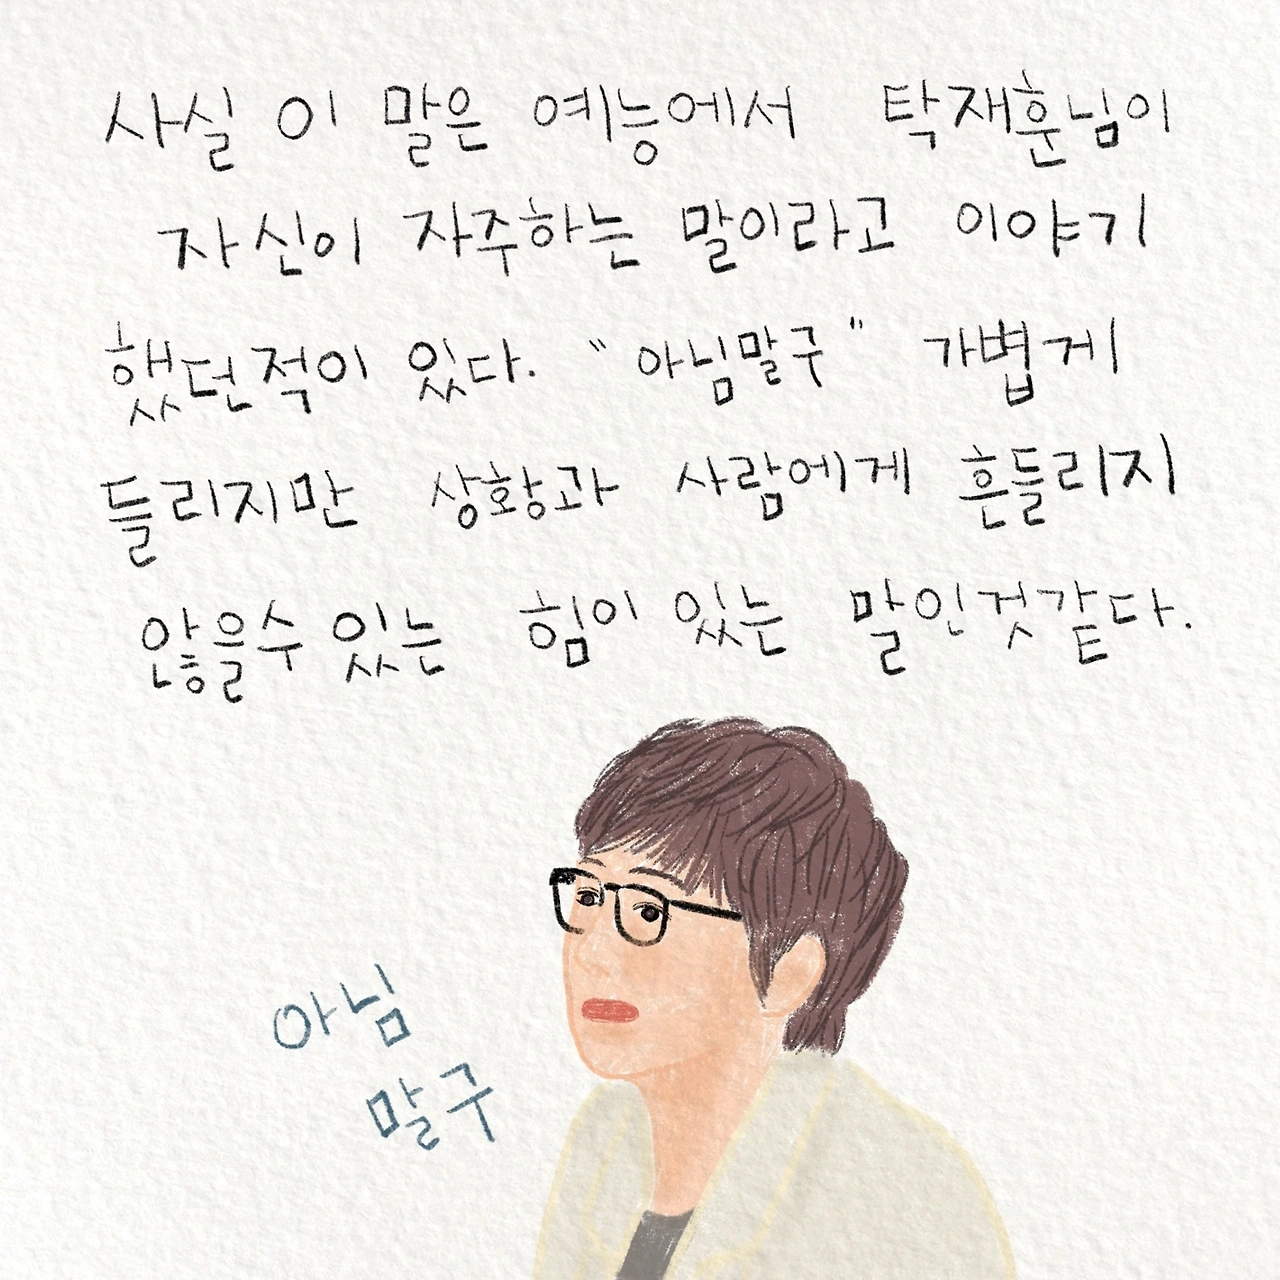 사실 이 말은 예능에서 탁재훈님이
자신이 자주하는 말이라고 이야기
했던적이 있다. "아님말구" 가볍게
들리지만 상황과 사람에게 흔들리지
않을수 있는 힘이 있는 말인것같다.
아님
말구